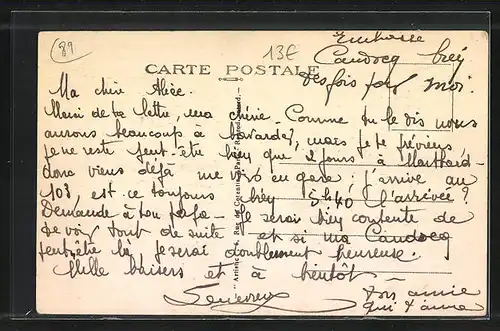 (89)
13€
Embrasse
Candocq bien
des fois pour moi.
CARTE POSTALE
Ma chère Alice.
Merci de ta lettre, ma chérie. Comme tu le dis nous
aurons beaucoup à bavarder, mais je te préviens
je ne reste peut-être bien que 2 jours à
donc viens déjà me en gare; j'arrive au
103, est-ce toujours bien 5h40 l'arrivée?
Demande à ton Je serai bien contente de
te voir tout de suite et si ma Candocq
peut être là je serai doublement heureuse.
Mille baisers et à bientôt
Ton amie
qui t'aime